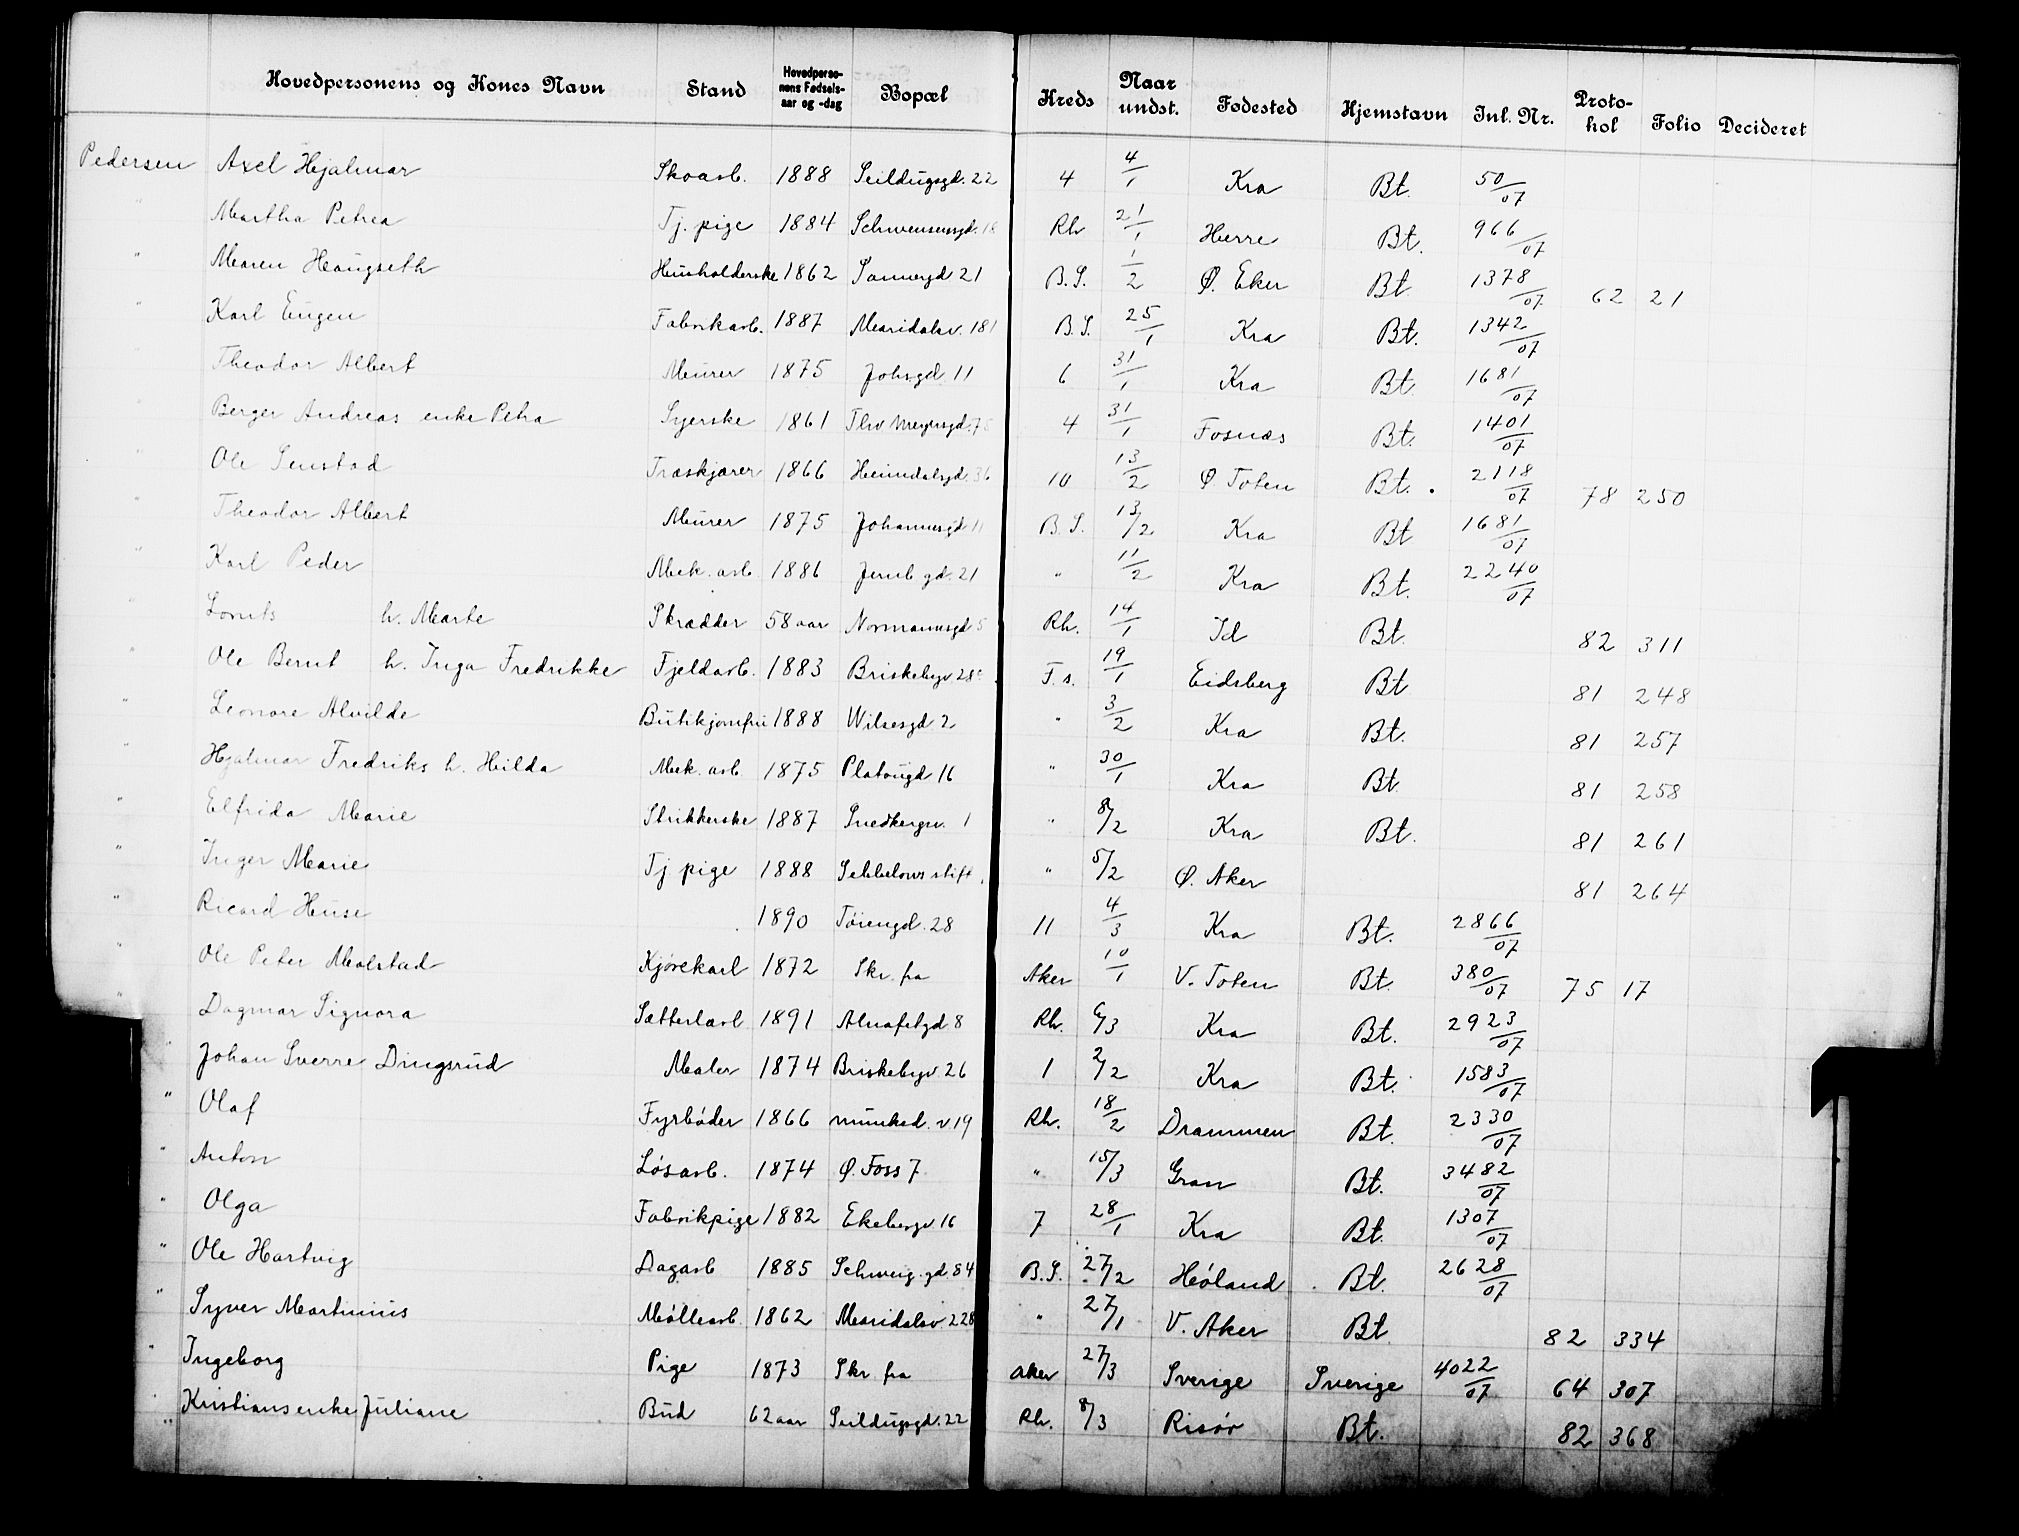 Hovedpersonens og Kones Navn Stand Hovedpersonens Fødselsaar og -dag Bopæl Kreds Naar undst. Fødested Hjemstavn Inl. Nr. Protokol Folio Decideret
Pedersen Axel Hjalmar Skoarb. 1888 Seildugsgd. 22 4 4/1 Kra Bt. 50/07
" Martha Petrea Tj. pige 1884 Schwensensgd. 18 Rh 21/1 Herre Bt. 966/07
" Maren Haugseth Husholderske 1862 Sannergd 21 B.S. 1/2 Ø. Eker Bt 1378/07 62 21
" Karl Eugen Fabrikarb. 1887 Maridalsv. 181 B.S. 25/1 Kra Bt. 1342/07
" Theodor Albert Murer 1875 Johsgd. 11 6 31/1 Kra Bt. 1681/07
" Berger Andreas enke Petra Syerske 1861 Thv Meyersgd. 75 4 31/1 Fosnæs Bt. 1401/07
" Ole Senstad Træskjærer 1866 Heimdalsgd. 36 10 13/2 Ø Toten Bt. 2118/07 78 250
" Theodor Albert Murer 1875 Johannesgd 11 B.S. 13/2 Kra Bt 1681/07
" Karl Peder Mek. arb. 1886 Jernb gd. 21 " 11/2 Kra Bt. 2240/07
" Lornts h. Marte Skrædder 58 aar Normannsgd 5 Rh. 14/1 Id Bt. 82 311
" Ole Bernt h. Inga Fredrikke Fjeldarb. 1883 Briskebyv 28 F.s. 19/1 Eidsberg Bt 81 248
" Leonore Alvilde Butikjomfru 1888 Wilsesgd. 2 " 3/2 Kra Bt. 81 257
" Hjalmar Fredriks h. Hilda Mek. arb. 1875 Platougd 16 " 30/1 Kra Bt. 81 258
" Elfrida Marie Strikkerske 1887 Snedkergv. 1 " 8/2 Kra Bt. 81 261
" Inger Marie Tj pige 1888 Sebbelows stift. " 5/2 Ø. Aker 81 264
" Ricard Huse 1890 Tøiengd. 28 11 4/3 Kra Bt. 2866/07
" Ole Peter Malstad Kjørekarl 1872 Skr. fra Aker 10/1 V. Toten Bt. 380/07 75 17
" Dagmar Signora Sætterlærl 1891 Alnafetgd 8 Rh. 6/3 Kra Bt. 2923/07
" Johan Sverre Dingsrud Maler 1874 Briskebyv. 26 1 2/2 Kra Bt. 1583/07
" Olaf Fyrbøder 1866 munked. v 19 Rh. 18/2 Drammen Bt. 2330/07
" Anton Løsarb. 1874 Ø. Foss 7 " 15/3 Gran Bt. 3482/07
" Olga Fabrikpige 1882 Ekebergv. 16 7 28/1 Kra Bt. 1307/07
" Ole Hartvig Dagarb 1885 Schweig. gd. 84 B.S. 27/2 Høland Bt. 2628/07
" Syver Martinius Møllearb. 1862 Maridalsv 228 " 27/1 V. Aker Bt 82 334
" Ingeborg Pige 1873 Skr fra aker 27/3 Sverige Sverige 4022/07 64 307
" Kristians enke Juliane Bud 62 aar Seildugsgd. 22 Rh. 8/3 Risør Bt. 82 368